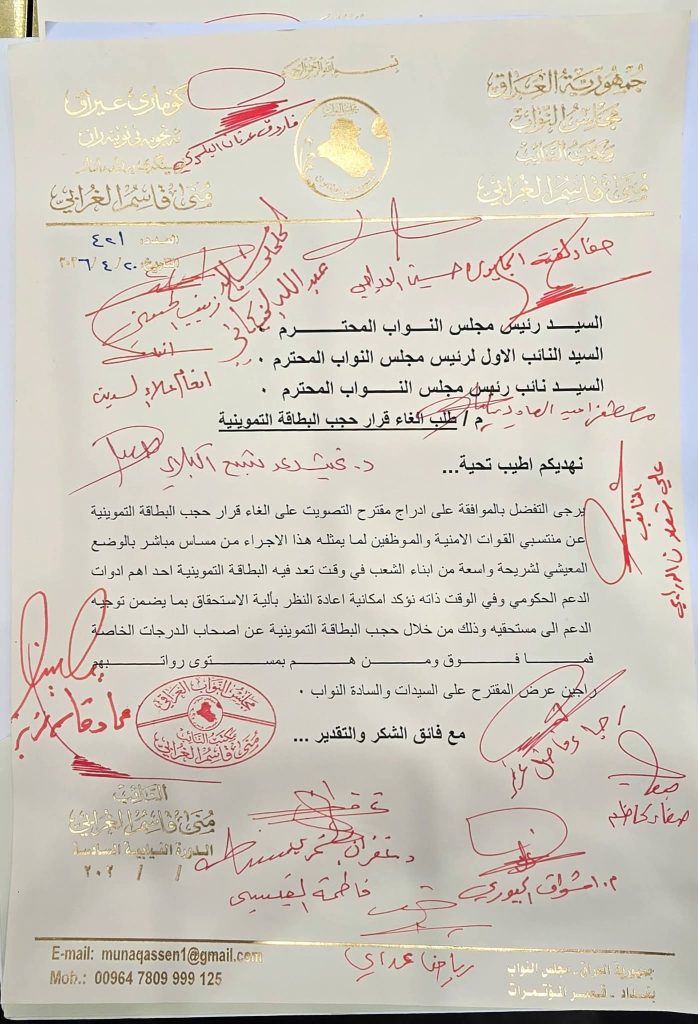 بسم الله الرحمن الرحيم
جمهورية العراق
مجلس النواب
مكتب النائب
منى قاسم الغرابي
كوماري عيراق
منى قاسم الغرابي
العدد: ٤٢١
التاريخ: ٢٠٢٦/٤/٢٠
حسين
عبد الله
زينب
السيد رئيس مجلس النواب المحترم
السيد النائب الاول لرئيس مجلس النواب المحترم .
السيد نائب رئيس مجلس النواب المحترم .
انغام علاء الدين
م / طلب الغاء قرار حجب البطاقة التموينية
نهديكم اطيب تحية...
النائب
يرجى التفضل بالموافقة على ادراج مقترح التصويت على الغاء قرار حجب البطاقة التموينية
عن منتسبي القوات الامنية والموظفين لما يمثله هذا الاجراء من مساس مباشر بالوضع
المعيشي لشريحة واسعة من ابناء الشعب في وقت تعد فيه البطاقة التموينية احد اهم ادوات
الدعم الحكومي وفي الوقت ذاته نؤكد امكانية اعادة النظر بألية الاستحقاق بما يضمن توجيه
الدعم الى مستحقيه وذلك من خلال حجب البطاقة التموينية عن اصحاب الدرجات الخاصة
فما فوق ومن هم بمستوى رواتبهم
راجين عرض المقترح على السيدات والسادة النواب .
مع فائق الشكر والتقدير ...
مجلس النواب العراقي
مكتب النائب
منى قاسم الغرابي
صفاء كاظم
النائب
منى قاسم الغرابي
الدورة النيابية السادسة
/ / ٢٠٢
فاطمة القيسي
م. اشواق الجبوري
رياض عداي
E-mail: munaqassen1@gmail.com
Mob.: 00964 7809 999 125
جمهورية العراق - مجلس النواب
بغداد - قصر المؤتمرات